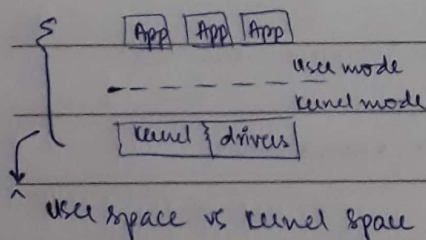 App App App
user mode
kernel mode
kernel & drivers
^ user space vs kernel space